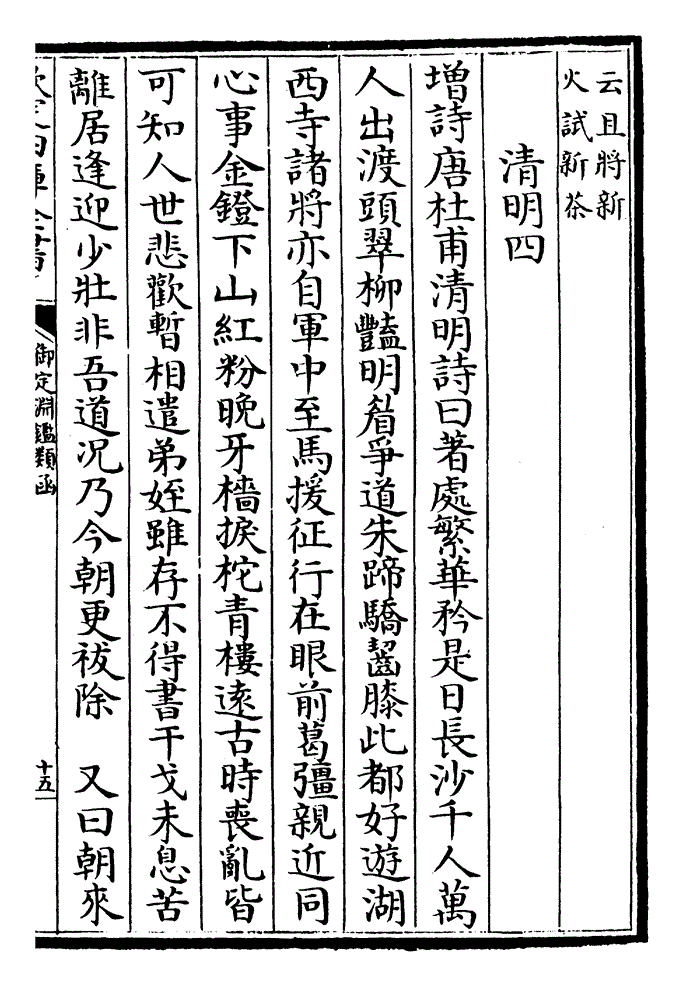 云且將新
火試新茶
清明四
增詩唐杜甫清明詩曰著處繁華矜是日長沙千人萬
人出渡頭翠柳豔明眉爭道朱蹄驕齧膝此都好遊湖
西寺諸將亦自軍中至馬援征行在眼前葛彊親近同
心事金鐙下山紅粉晚牙檣捩柁青樓逺古時喪亂皆
可知人世悲歡暫相遣弟姪雖存不得書干戈未息苦
離居逢迎少壯非吾道况乃今朝更祓除　又曰朝來
欽定四庫全書
御定淵鑑類函
十五